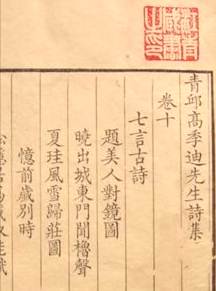 青邱高季迪先生詩集
卷十
七言古詩
題美人對鏡圖
曉出城東門聞櫓聲
夏珪風雪歸莊圖
憶前歲別時